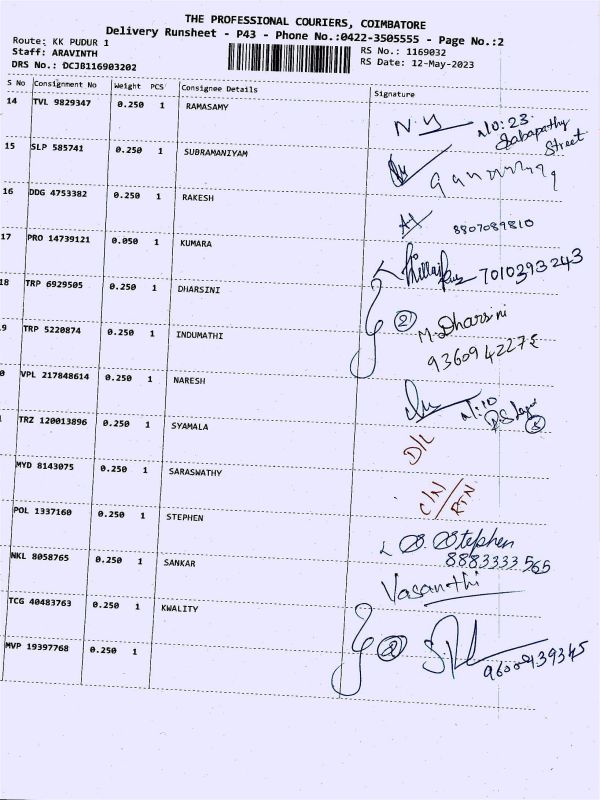 THE PROFESSIONAL COURIERS, COIMBATORE
Delivery Runsheet - P43 - Phone No.:0422-3505555 - Page No.:2
Route: KK PUDUR 1
Staff: ARAVINTH
DRS No.: DCJB116903202
RS No.: 1169032
RS Date: 12-May-2023
S No Consignment No Weight PCS Consignee Details Signature
14 TVL 9829347 0.250 1 RAMASAMY N.
No: 23
Sabapathy
Street
15 SLP 585741 0.250 1 SUBRAMANIYAM
16 DDG 4753382 0.250 1 RAKESH 8807089810
17 PRO 14739121 0.050 1 KUMARA 7010393243
18 TRP 6929505 0.250 1 DHARSINI 2 M. Dharsini
9 TRP 5220874 0.250 1 INDUMATHI 9360942275
0 VPL 217848614 0.250 1 NARESH
N: 10
TRZ 120013896 0.250 1 SYAMALA D/L
MYD 8143075 0.250 1 SARASWATHY C/N/RTN
POL 1337160 0.250 1 STEPHEN S. Stephen
8883333565
NKL 8058765 0.250 1 SANKAR Vasanthi
TCG 40483763 0.250 1 KWALITY
MVP 19397768 0.250 1 2
9600939345